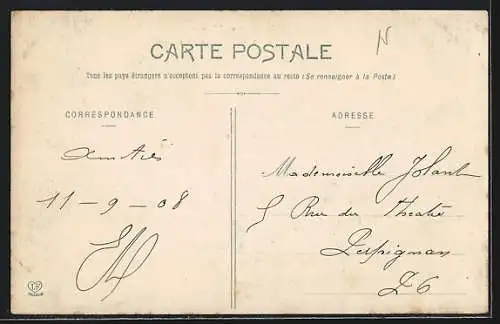 CARTE POSTALE
Tous les pays étrangers n'acceptent pas la correspondance au recto (Se renseigner à la Poste)
CORRESPONDANCE
ADRESSE
Amitiés
11-9-08
Mademoiselle Jolant
5 Rue du Théatre
Perpignan